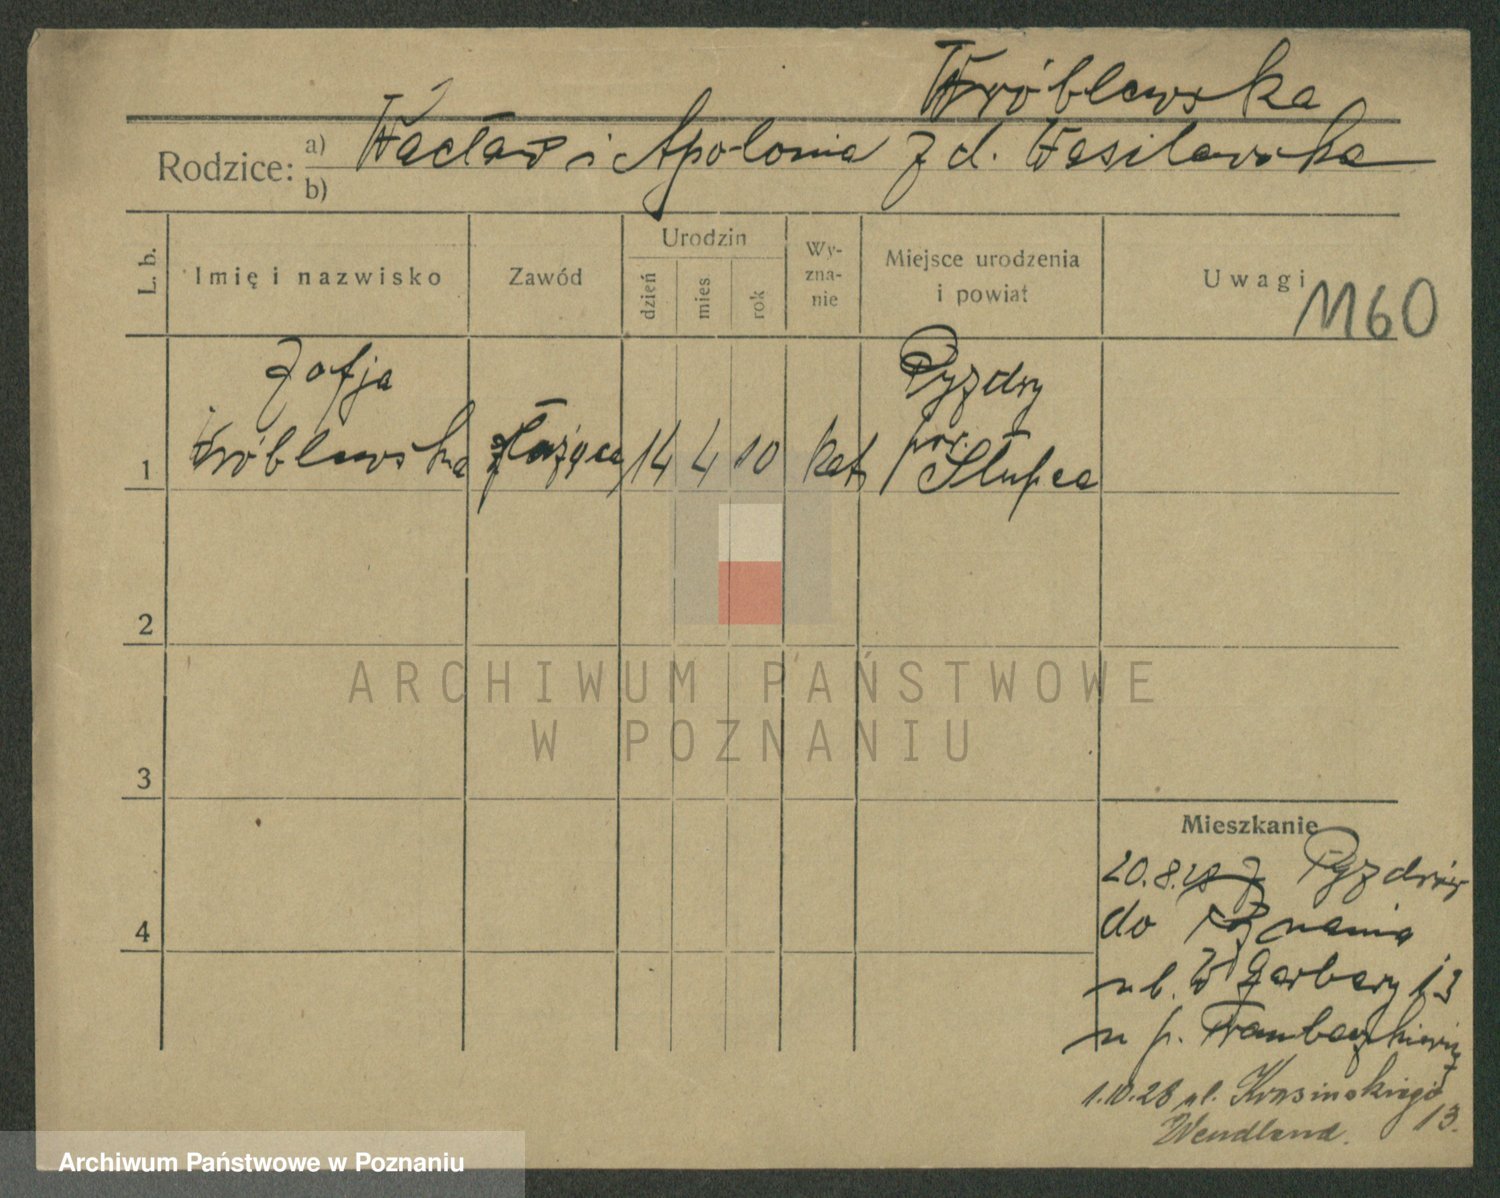 Wróblewska
Rodzice: a) Wacław i Apolonia z d. Wasilewska
b)
L. b.
Imię i nazwisko
Zawód
Urodzin
dzień
mies
rok
Wy-
zna-
nie
Miejsce urodzenia
i powiat
Uwagi
1160
Zofja
Wróblewska
służąca
14
4
10
kat
Pyzdry
pow.
Słupca
1
2
3
4
ARCHIWUM PAŃSTWOWE
W POZNANIU
Mieszkanie
20.8.28 z Pyzdrów
do Poznania
ul. W Garbary 13
u p.
1.10.28 ul. Krasińskiego
13.
Wendland.
Archiwum Państwowe w Poznaniu